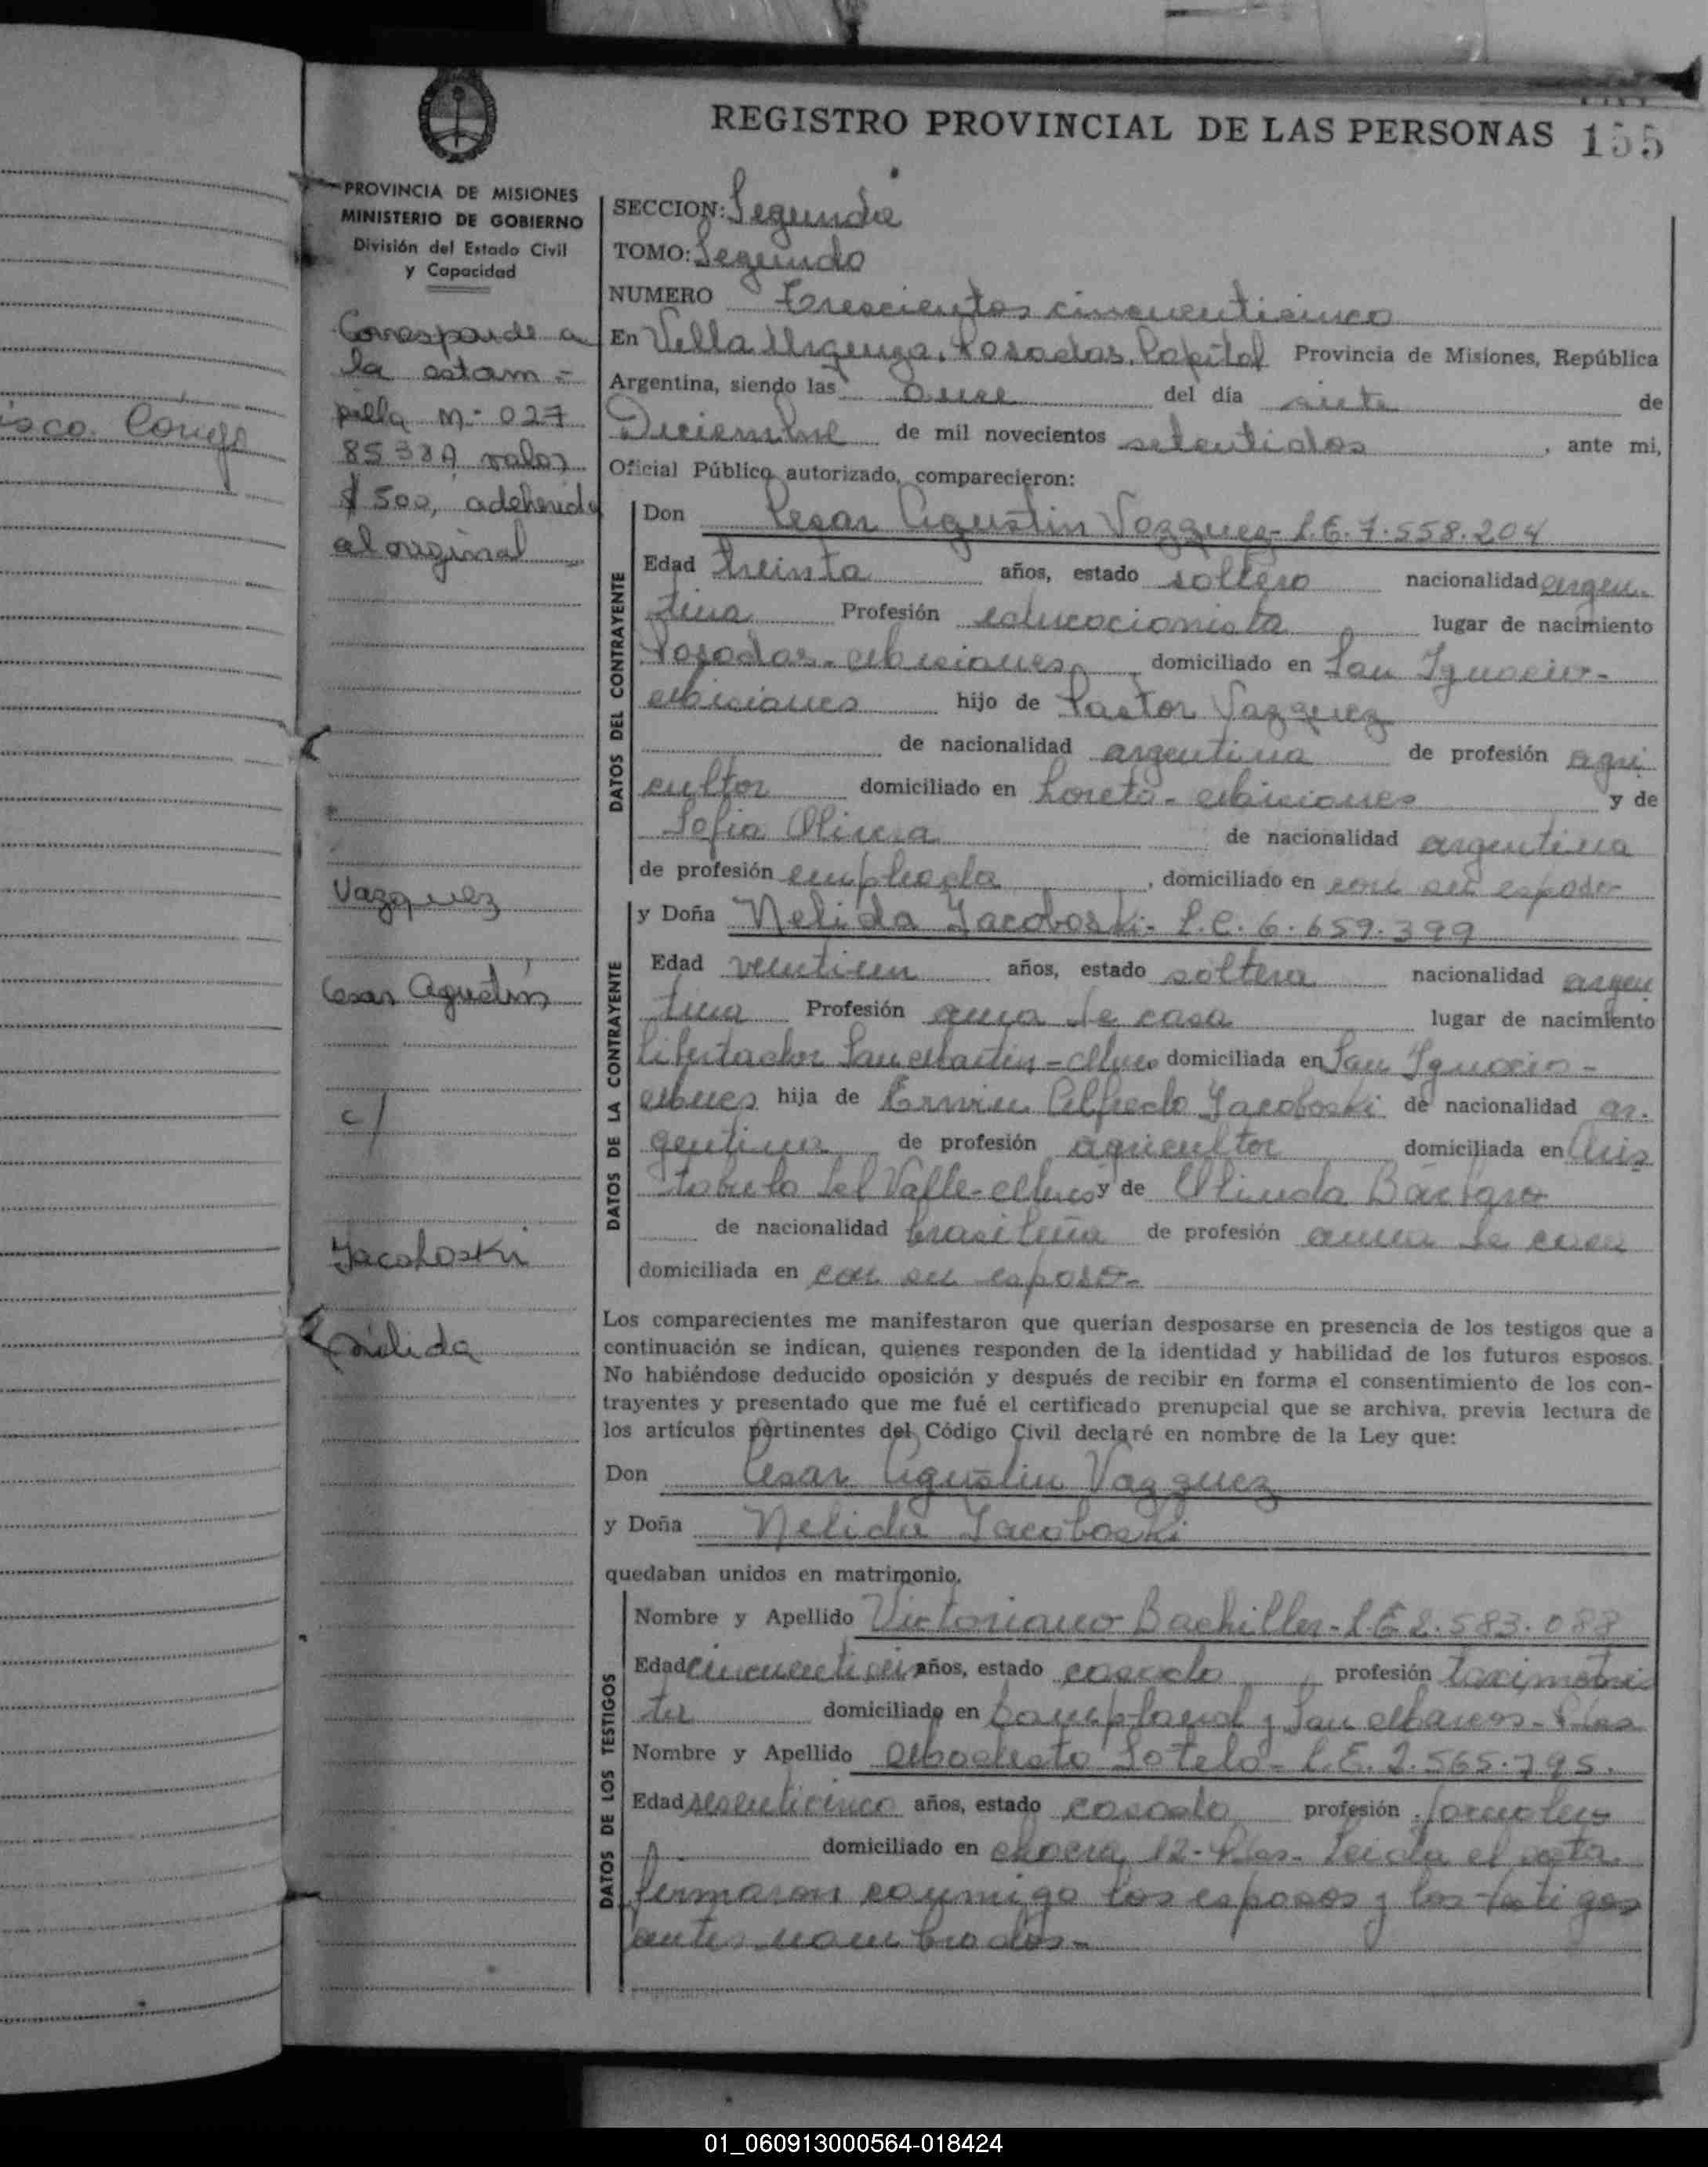 REGISTRO PROVINCIAL DE LAS PERSONAS 155
PROVINCIA DE MISIONES
MINISTERIO DE GOBIERNO
División del Estado Civil
y Capacidad
Corresponde a
la estam-
pilla Nº 027
85338A valor
$ 500, adherida
al original
Vazquez
Cesar Agustin
c/
Jacoboski
Nélida
SECCION: Segunda
TOMO: Segundo
NUMERO Trescientos cincuenticinco
En Villa Urquiza, Posadas, Capital Provincia de Misiones, República
Argentina, siendo las once del día siete de
Diciembre de mil novecientos setentidos, ante mi,
Oficial Público autorizado, comparecieron:
DATOS DEL CONTRAYENTE
Don Cesar Agustin Vazquez- L.E. 7.558.204
Edad treinta años, estado soltero nacionalidad argen-
tina Profesión educacionista lugar de nacimiento
Posadas-Misiones, domiciliado en San Ignacio-
Misiones hijo de Pastor Vazquez
de nacionalidad argentina de profesión agri
cultor domiciliado en Loreto-Misiones y de
Sofia Olivera de nacionalidad argentina
de profesión empleada, domiciliado en con su esposo-
DATOS DE LA CONTRAYENTE
y Doña Nelida Jacoboski- L.C. 6.659.399
Edad veintiun años, estado soltera nacionalidad argen
tina Profesión ama de casa lugar de nacimiento
Libertador San Martin-Mnes domiciliada en San Ignacio-
Mnes hija de Erwin Alfredo Jacoboski de nacionalidad ar-
gentina de profesión agricultor domiciliada en Aris
tobulo del Valle-Mnes y de Olinda
de nacionalidad brasileña de profesión ama de casa
domiciliada en con su esposo-
Los comparecientes me manifestaron que querían desposarse en presencia de los testigos que a
continuación se indican, quienes responden de la identidad y habilidad de los futuros esposos.
No habiéndose deducido oposición y después de recibir en forma el consentimiento de los con-
trayentes y presentado que me fué el certificado prenupcial que se archiva, previa lectura de
los artículos pertinentes del Código Civil declaré en nombre de la Ley que:
Don Cesar Agustin Vazquez
y Doña Nelida Jacoboski
quedaban unidos en matrimonio.
DATOS DE LOS TESTIGOS
Nombre y Apellido Victoriano Bachiller- L.E 2.583.088
Edad cincuentiseis años, estado casado profesión taximetris
ta domiciliado en Bompland y San Marcos-Pdas
Nombre y Apellido Modesto Sotelo- L.E. 2.565.795.
Edad sesenticinco años, estado casado profesión Jornalero
domiciliado en chacra 12-Pdas- Leida el acta
firmaron conmigo los esposos y los testigos
antes nombrados-
01_060913000564-018424